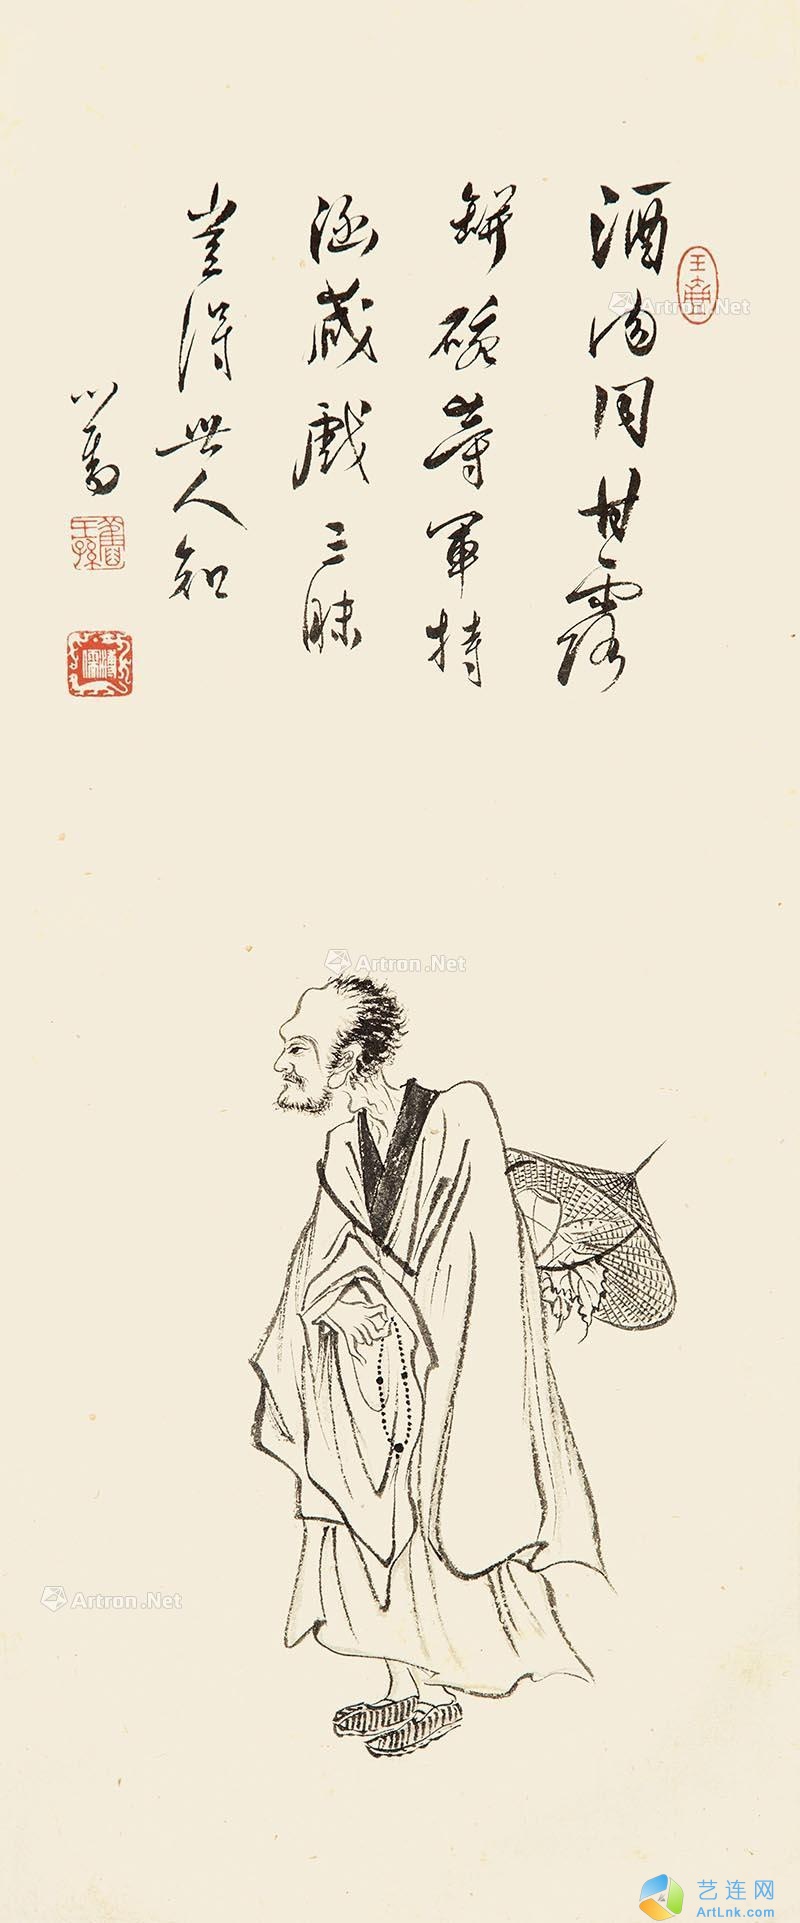 酒肉同甘露
缾碗等軍持
極戲三昧
豈得世人知
心畬
舊王孫
溥儒
Artron.Net
Artron.Net
Artron.Net
艺连网
ArtLnk.com